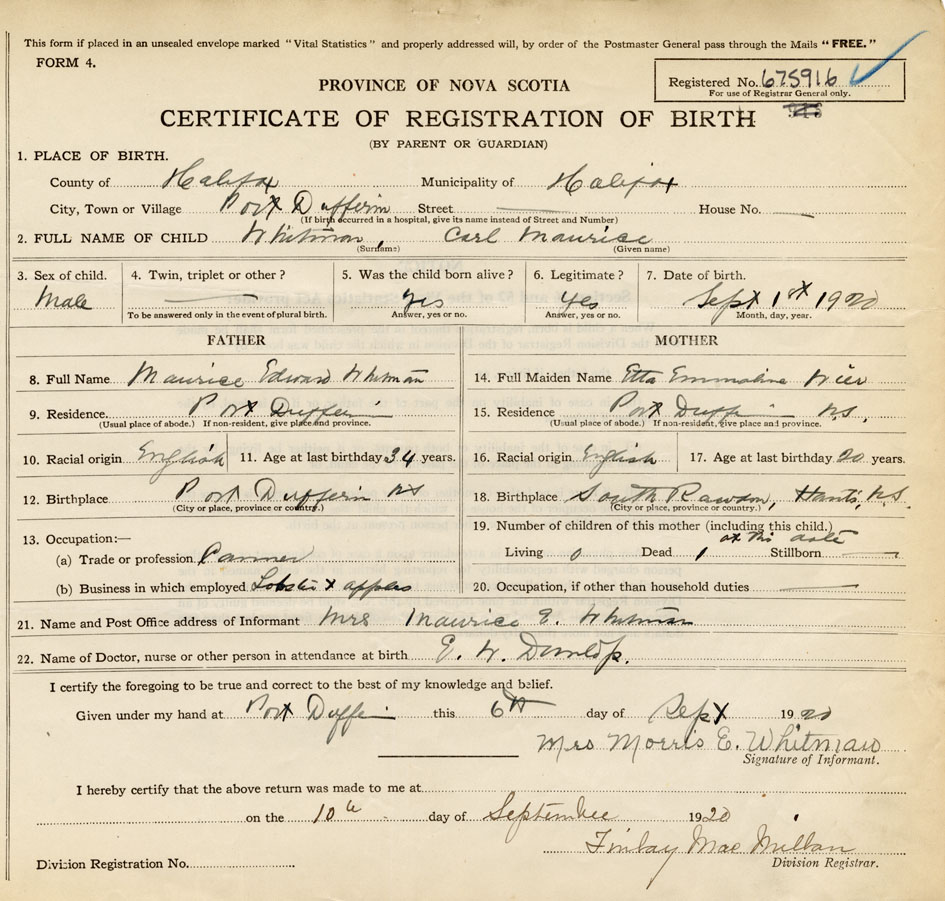 This form if placed in an unsealed envelope marked "Vital Statistics" and properly addressed will, by order of the Postmaster General pass through the Mails "FREE."
FORM 4.
Registered No. 675916
For use of Registrar General only.
PROVINCE OF NOVA SCOTIA
CERTIFICATE OF REGISTRATION OF BIRTH
(BY PARENT OR GUARDIAN)
1. PLACE OF BIRTH.
County of Halifax Municipality of Halifax
City, Town or Village Port Dufferin Street House No.
(If birth occurred in a hospital, give its name instead of Street and Number)
2. FULL NAME OF CHILD Whitman, Carl Maurice
(Surname) (Given name)
3. Sex of child. 4. Twin, triplet or other? 5. Was the child born alive? 6. Legitimate? 7. Date of birth.
Male yes yes Sept 1st 1920
To be answered only in the event of plural birth. Answer, yes or no. Answer, yes or no. Month, day, year.
FATHER MOTHER
8. Full Name Maurice Edward Whitman 14. Full Maiden Name Etta Emmaline Wier
9. Residence. Port Dufferin 15. Residence Port Dufferin N.S.
(Usual place of abode.) If non-resident, give place and province. (Usual place of abode.) If non-resident, give place and province.
10. Racial origin English 11. Age at last birthday 34 years. 16. Racial origin English 17. Age at last birthday 20 years.
12. Birthplace Port Dufferin NS 18. Birthplace South Rawdon, Hants, N.S.
(City or place, province or country.) (City or place, province or country.)
19. Number of children of this mother (including this child.)
at this date
13. Occupation:—
(a) Trade or profession Canner Living 0 Dead 1 Stillborn
(b) Business in which employed Lobster & apples 20. Occupation, if other than household duties
21. Name and Post Office address of Informant Mrs Maurice E. Whitman
22. Name of Doctor, nurse or other person in attendance at birth E. W. Dunlop.
I certify the foregoing to be true and correct to the best of my knowledge and belief.
Given under my hand at Port Dufferin this 6th day of Sept 1920
Mrs Morris E. Whitman
Signature of Informant.
I hereby certify that the above return was made to me at
on the 10th day of September 1920
Finlay Mac Millan
Division Registrar.
Division Registration No.